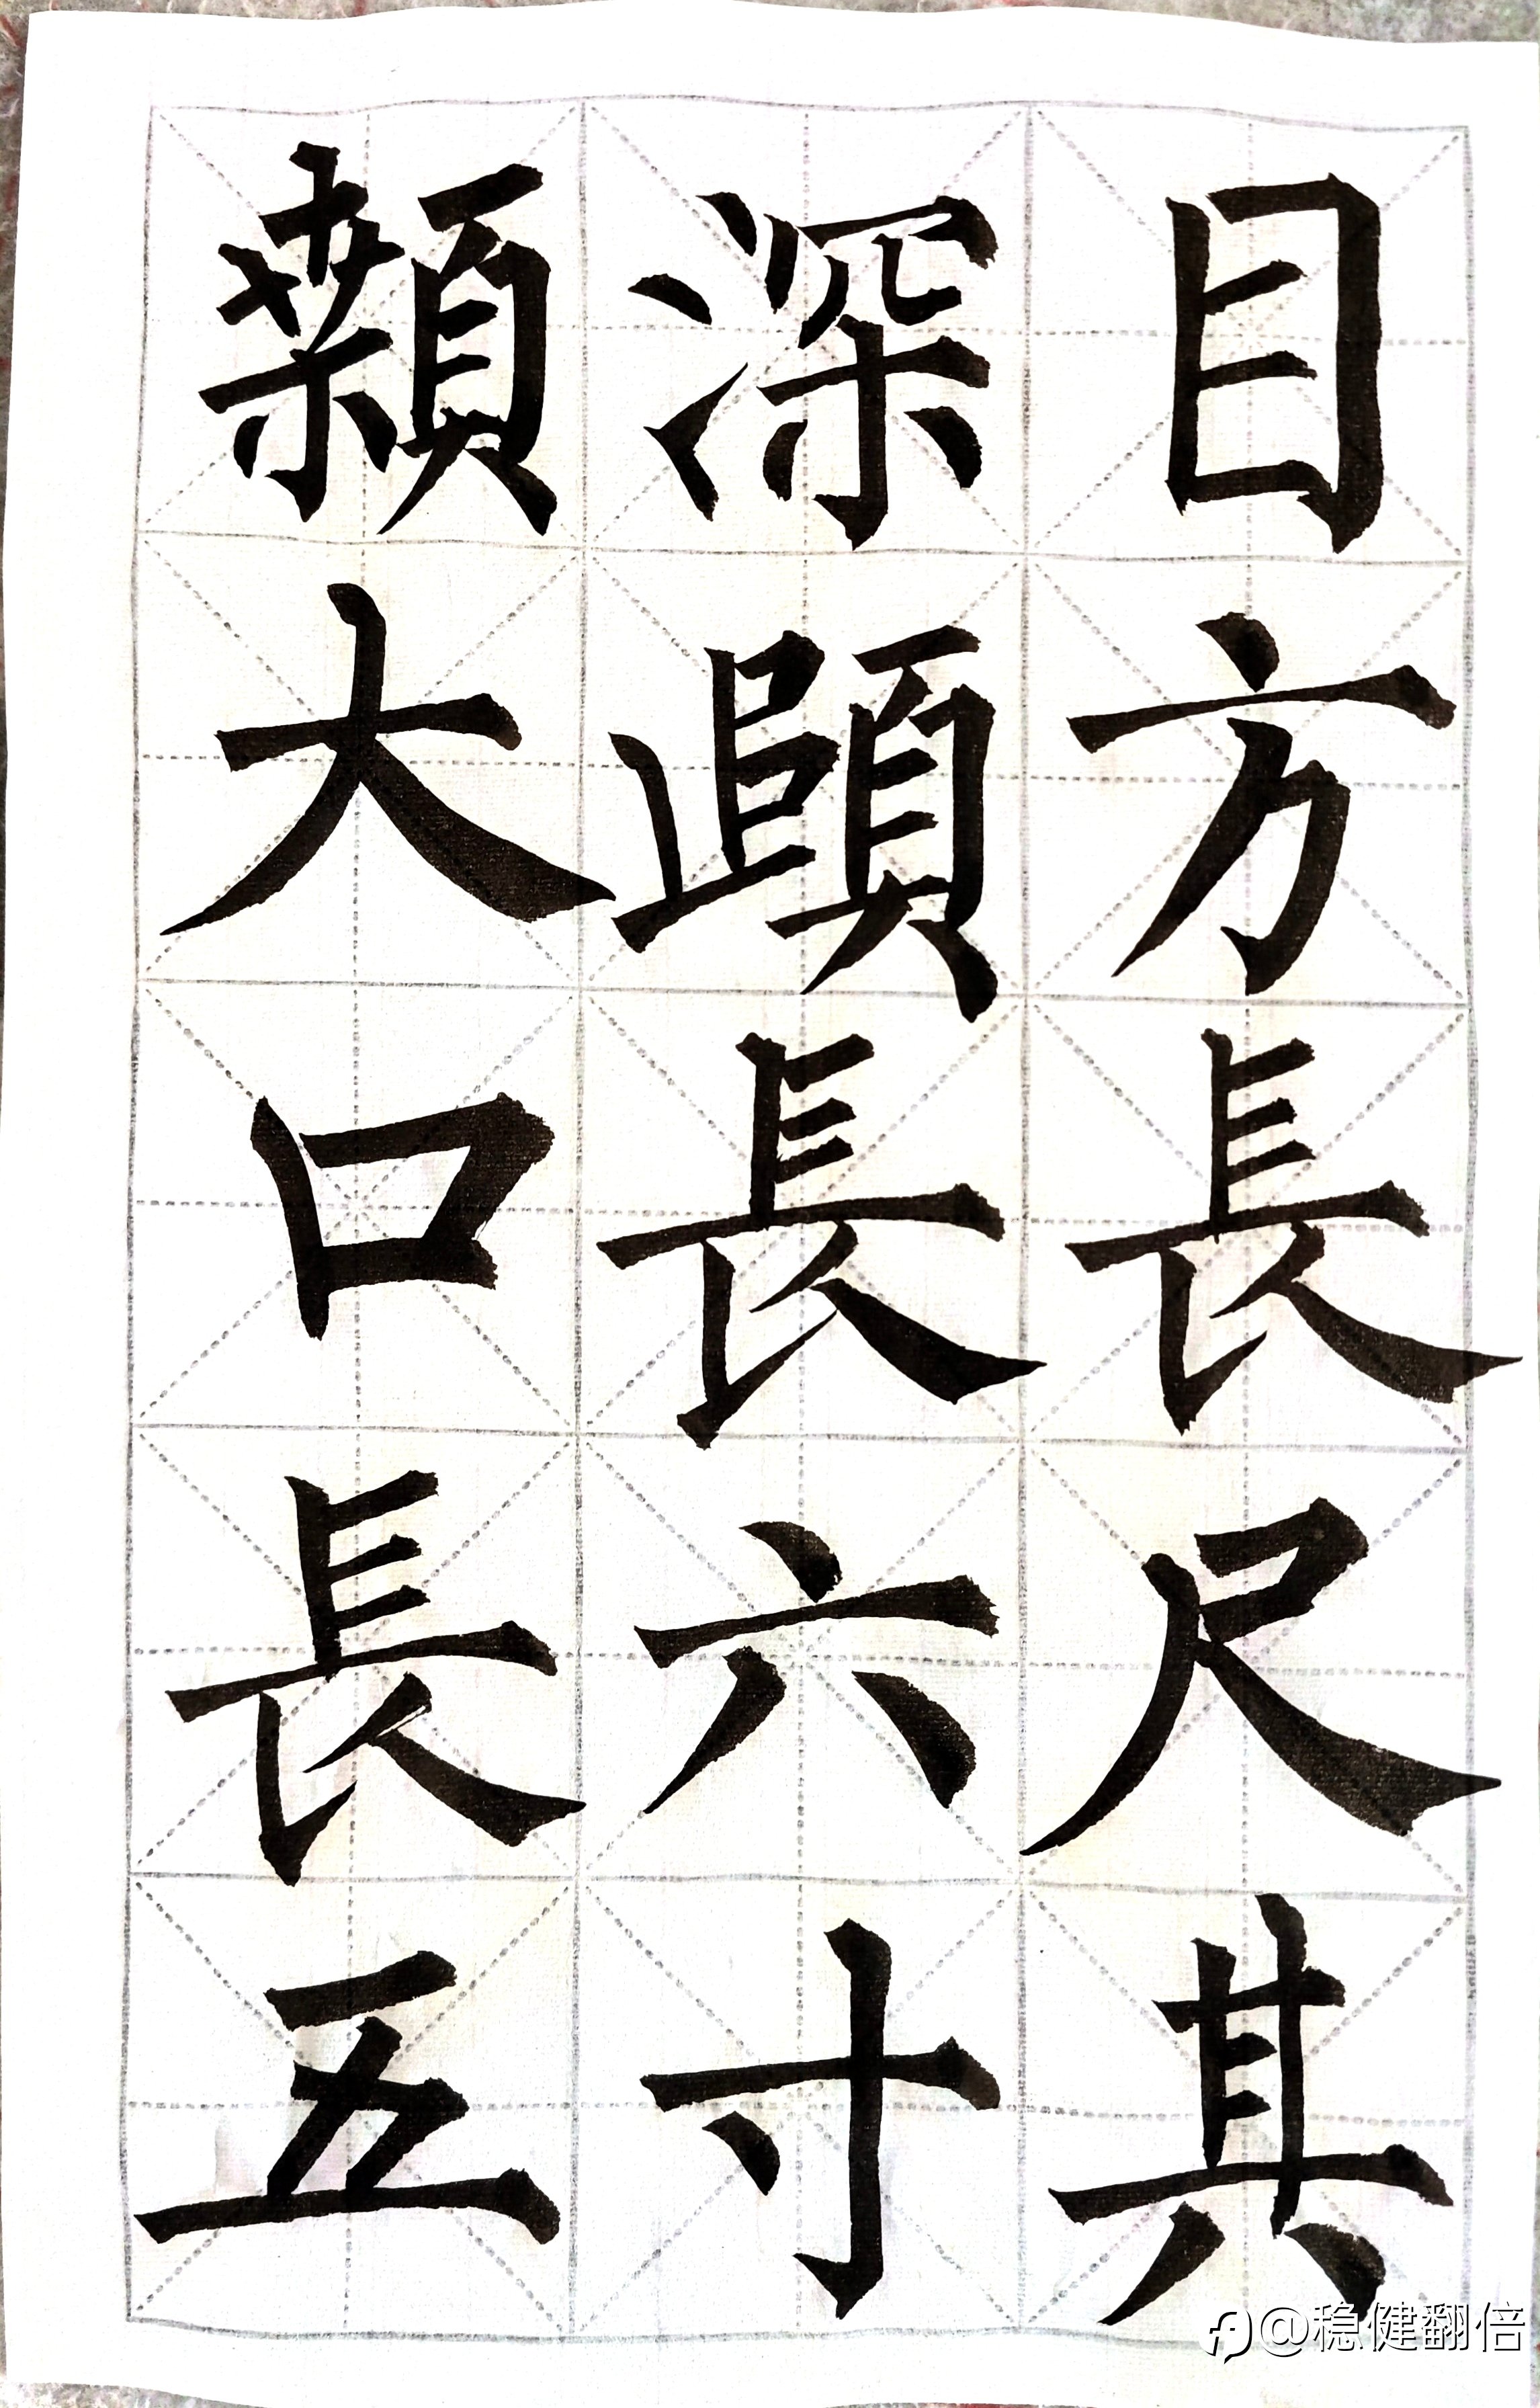 目方長尺其
深頤長六寸
顙大口長五
@稳健翻倍